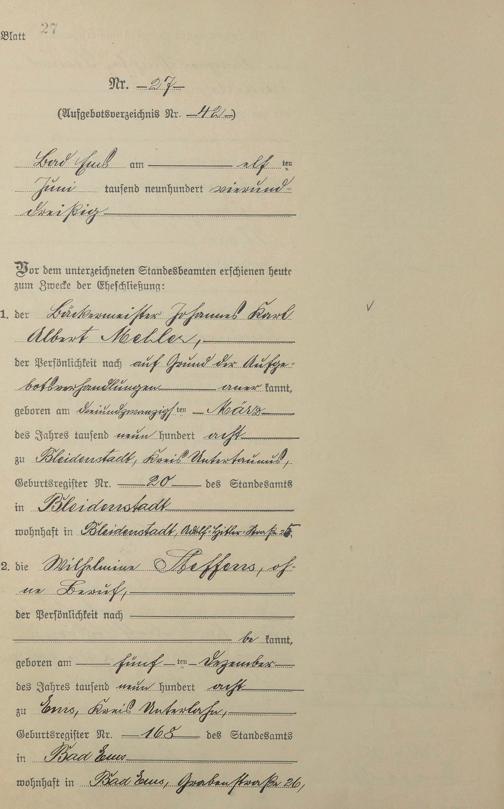 Blatt 27
Nr. 27
(Aufgebotsverzeichnis Nr. 42)
Bad Ems am elf ten
Juni tausend neunhundert vierund-
dreißig
Vor dem unterzeichneten Standesbeamten erschienen heute
zum Zwecke der Eheschließung:
1. der Bäckermeister Johannes Karl
Albert Mehler,
der Persönlichkeit nach auf Grund der Aufge-
botsverhandlungen aner kannt,
geboren am dreiundzwanzigs ten März
des Jahres tausend neun hundert acht
zu Bleidenstadt, Kreis Untertaunus,
Geburtsregister Nr. 20 des Standesamts
in Bleidenstadt
wohnhaft in Bleidenstadt, Adolf-Hitler-Straße 25.
2. die Wilhelmine Steffens, oh-
ne Beruf,
der Persönlichkeit nach
be kannt,
geboren am fünf ten Dezember
des Jahres tausend neun hundert acht
zu Ems, Kreis Unterlahn,
Geburtsregister Nr. 165 des Standesamts
in Bad Ems
wohnhaft in Bad Ems, Grabenstraße 26,